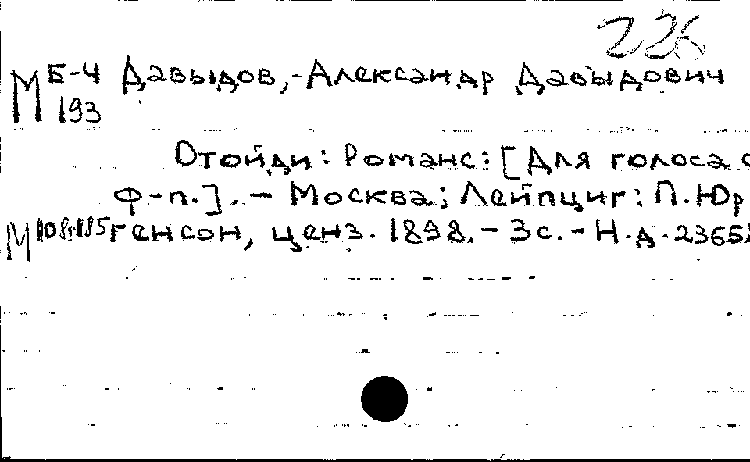 226
М Б-4 Давыдов,-Александр Давыдович
193
Отойди: Романс: [Для голоса с
ф-п.]. - Москва; Лейпциг: П. Юр
М 108/185 генсон, ценз. 1898. - 3с. - Н.д. 2365